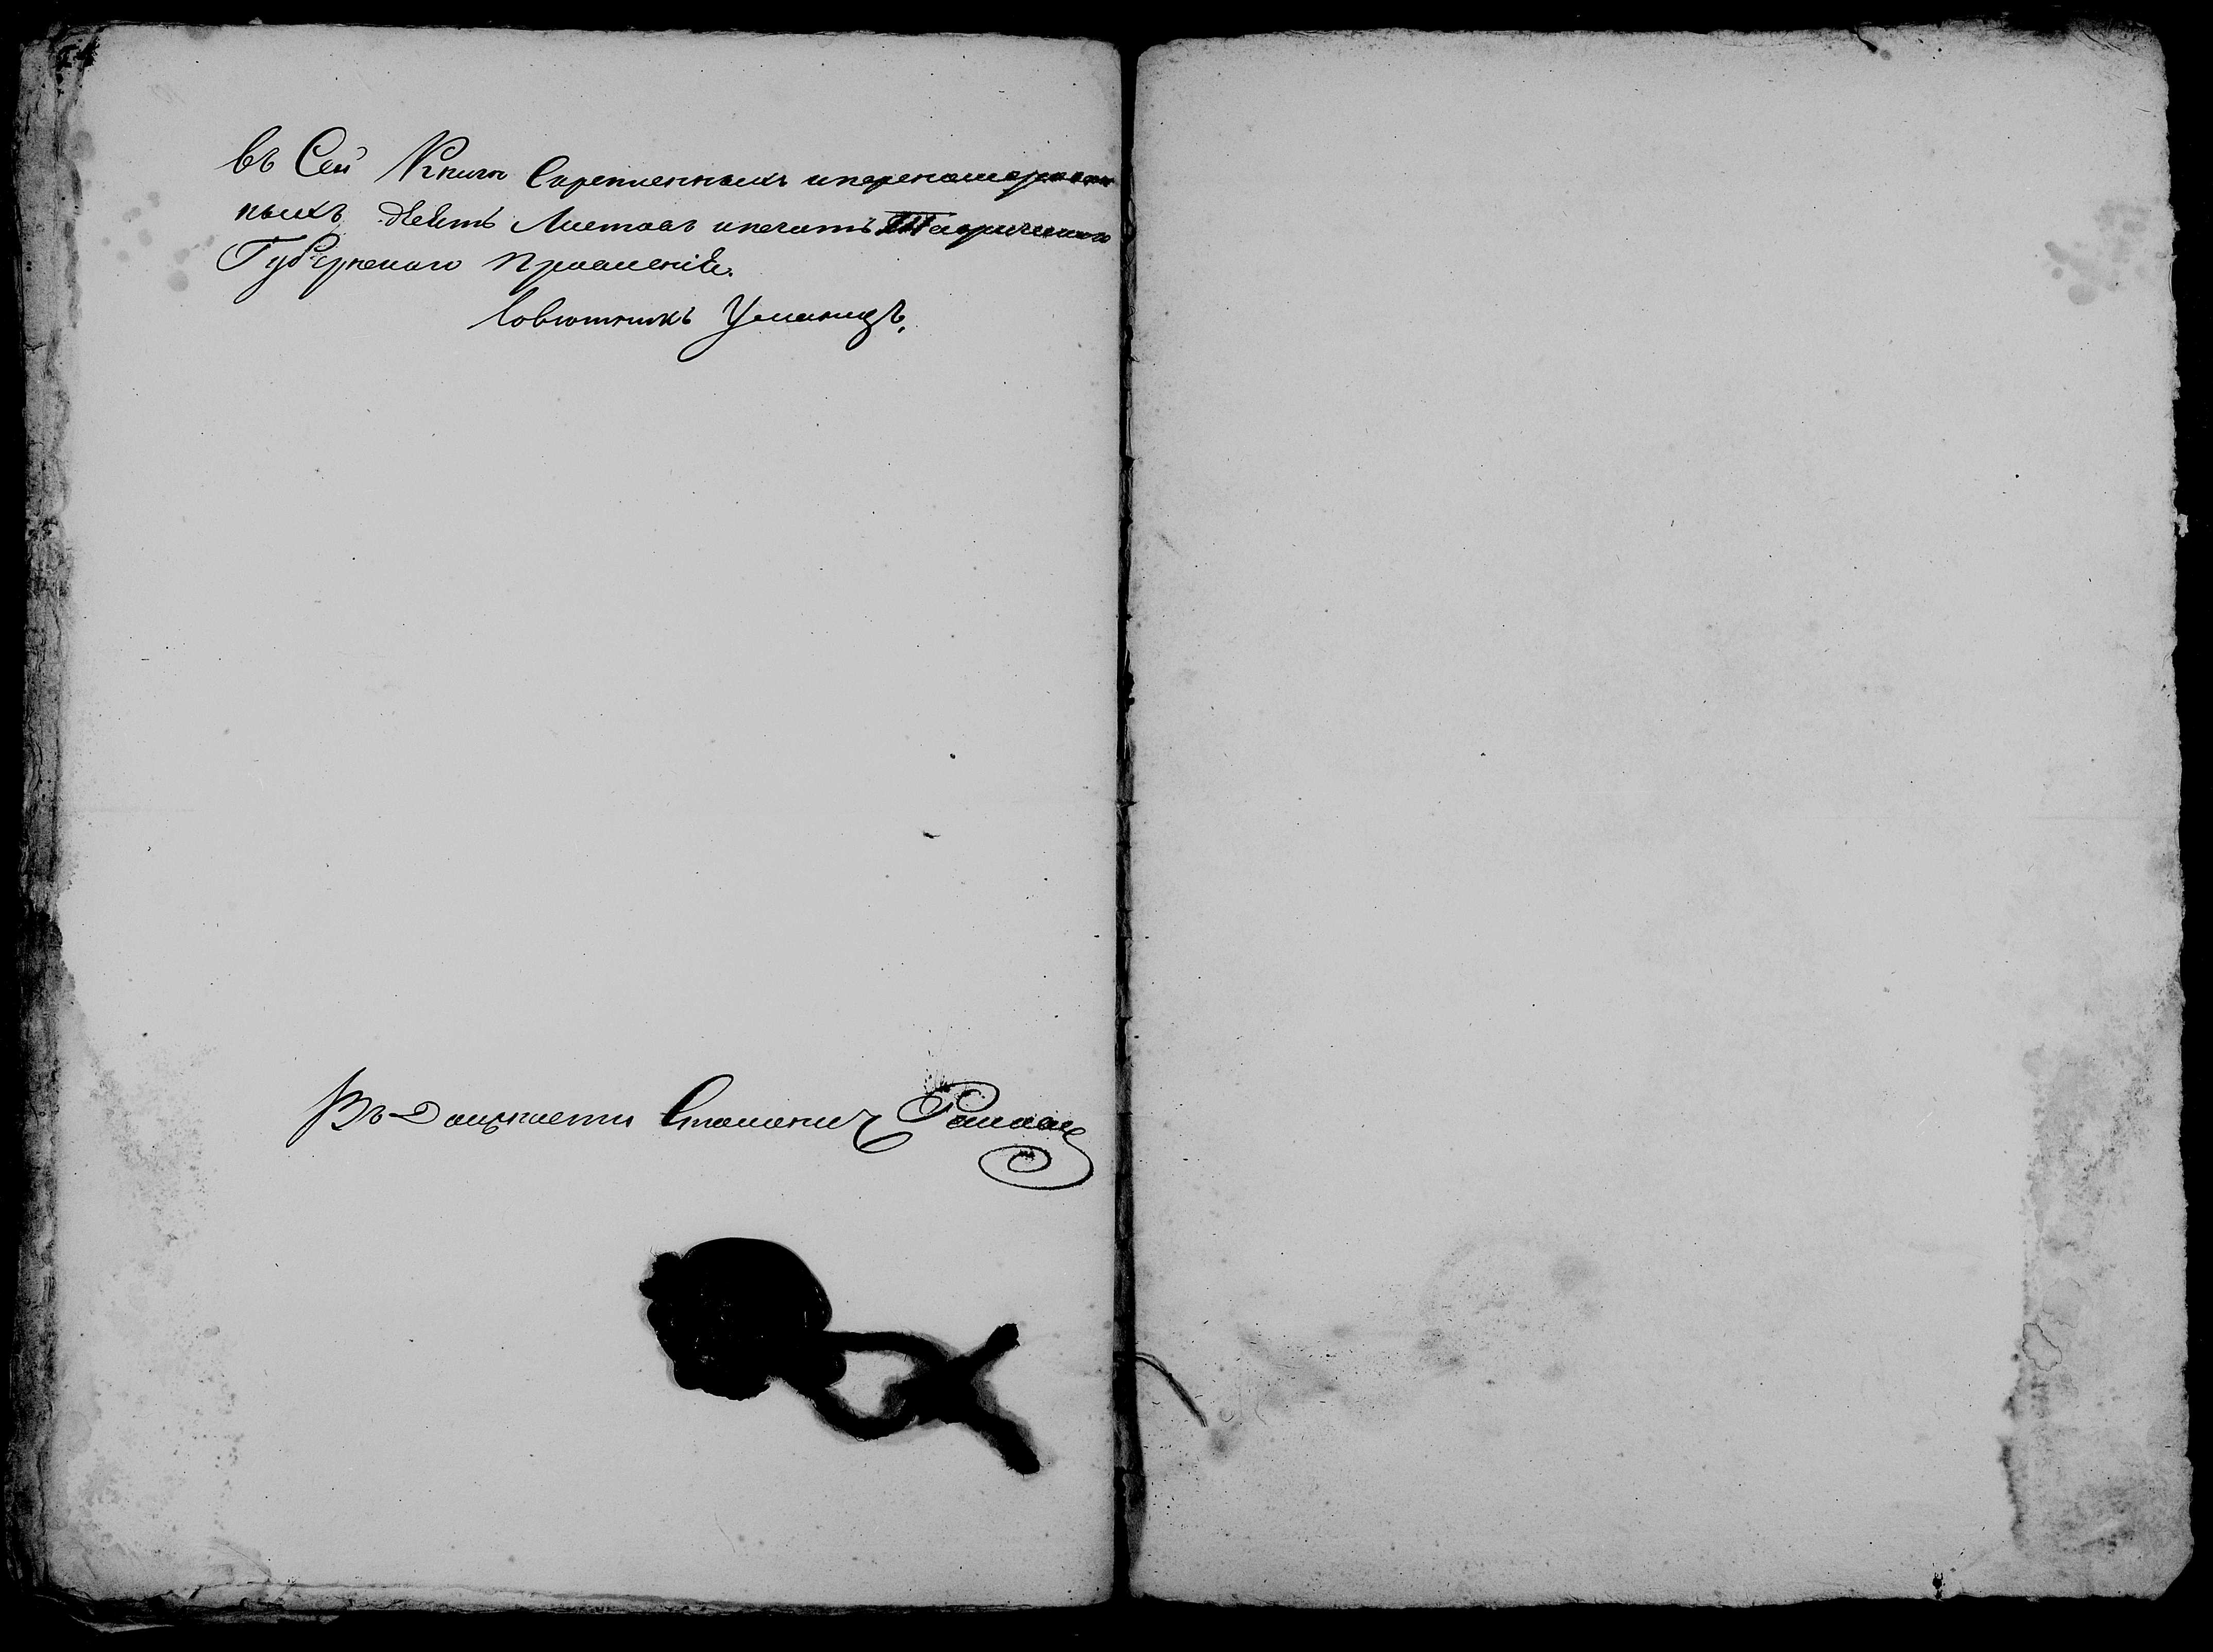 въ Сей Книги Скрепленныхъ и перенамерован
ныхъ девять Листовъ и печать Таврическаго
Губернскаго Правленія.
Совѣтникъ Уманецъ.
Въ Должности